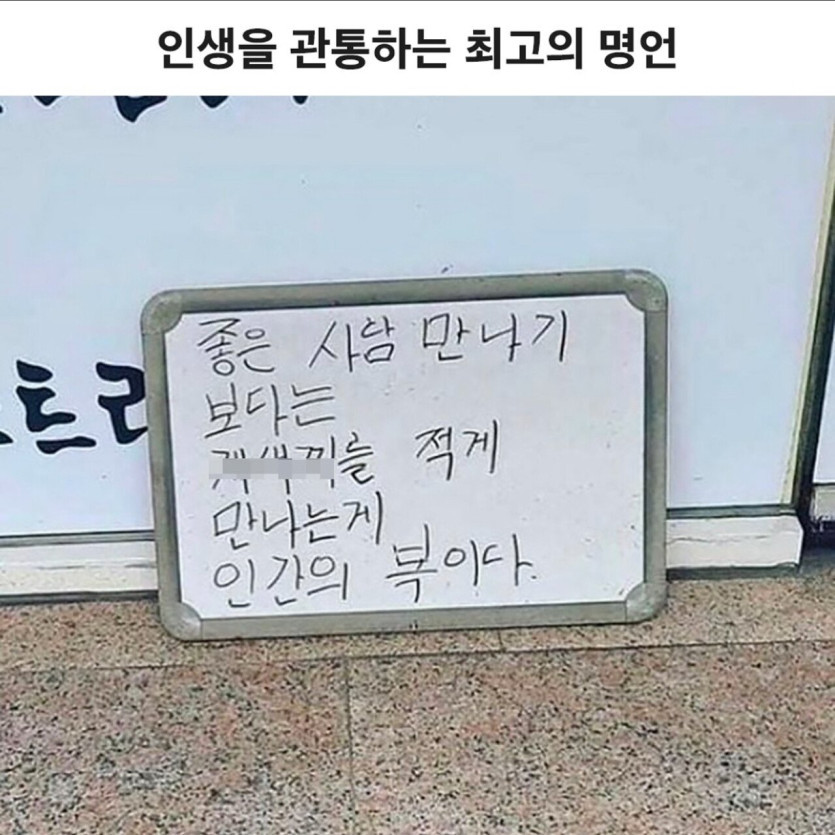 인생을 관통하는 최고의 명언
좋은 사람 만나기
보다는
를 적게
만나는게
인간의 복이다.
트리